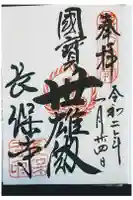 奉拝
令和二年
一月廿四日
國寶
世雄殿
長保寺